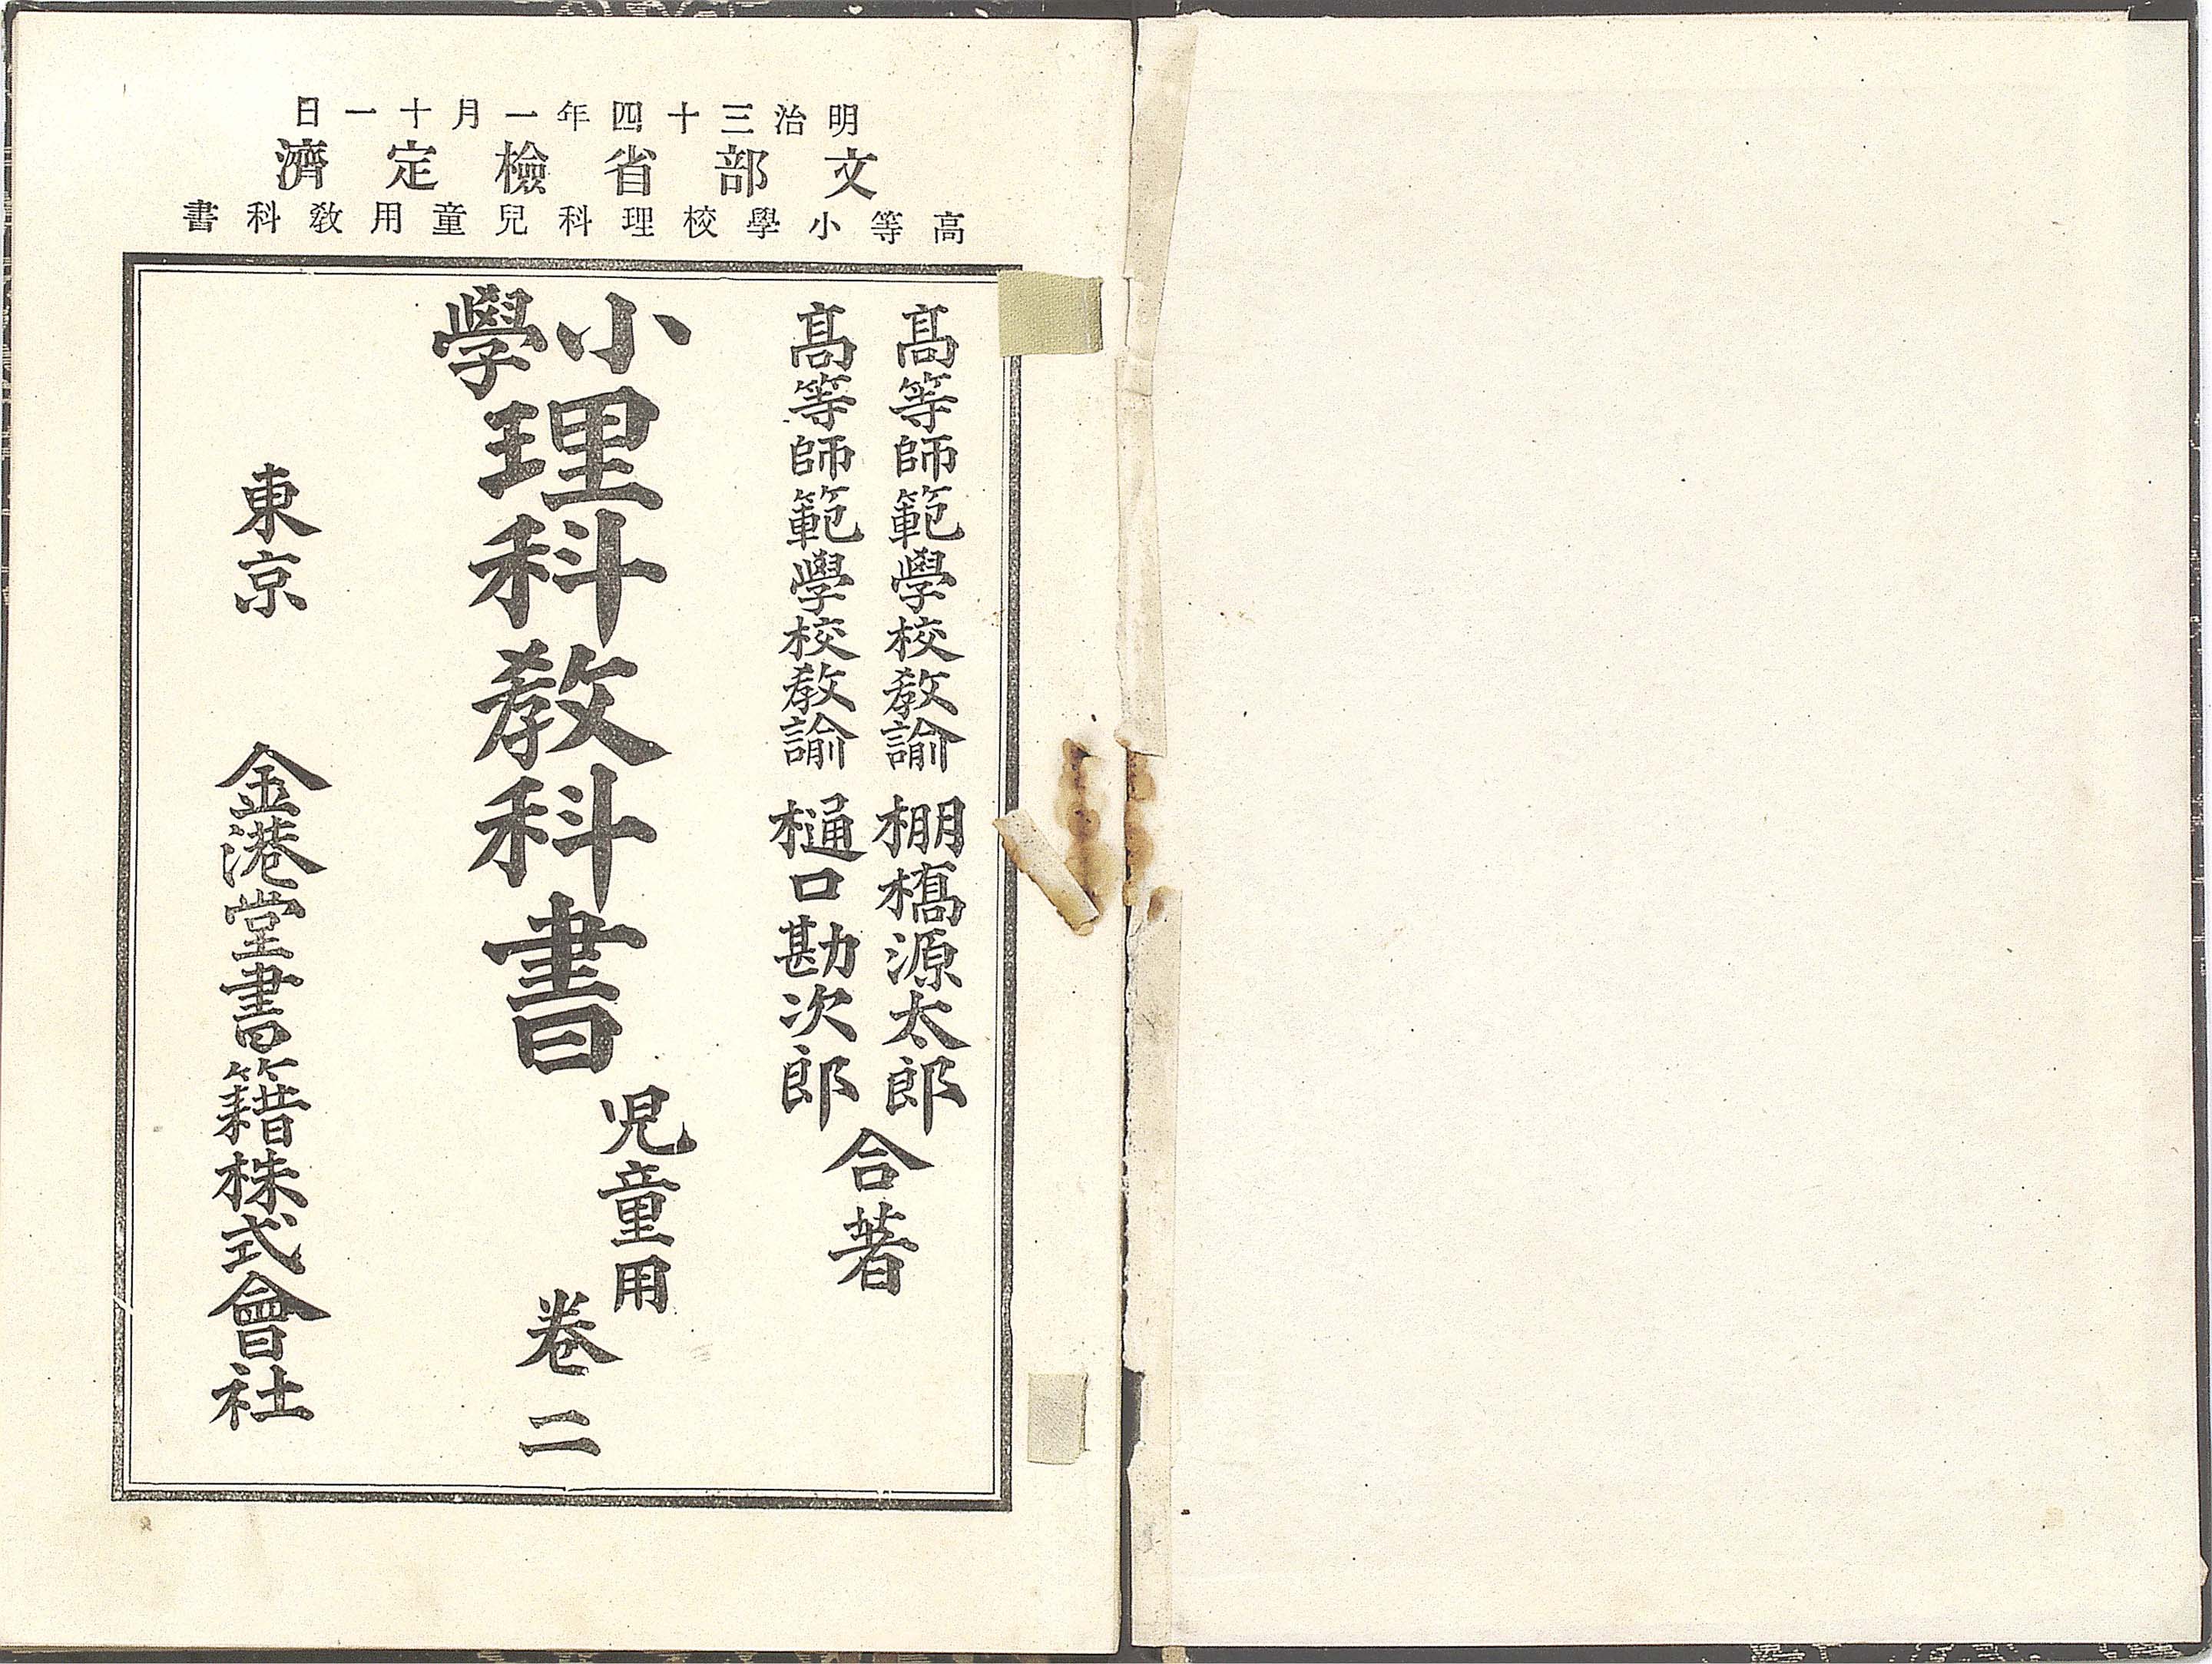 明治三十四年一月十一日
文部省檢定濟
高等小學校理科兒童用敎科書
髙等師範學校敎諭 棚橋源太郎
髙等師範學校敎諭 樋口勘次郎
合著
小學理科敎科書
児童用
卷二
東京 金港堂書籍株式會社